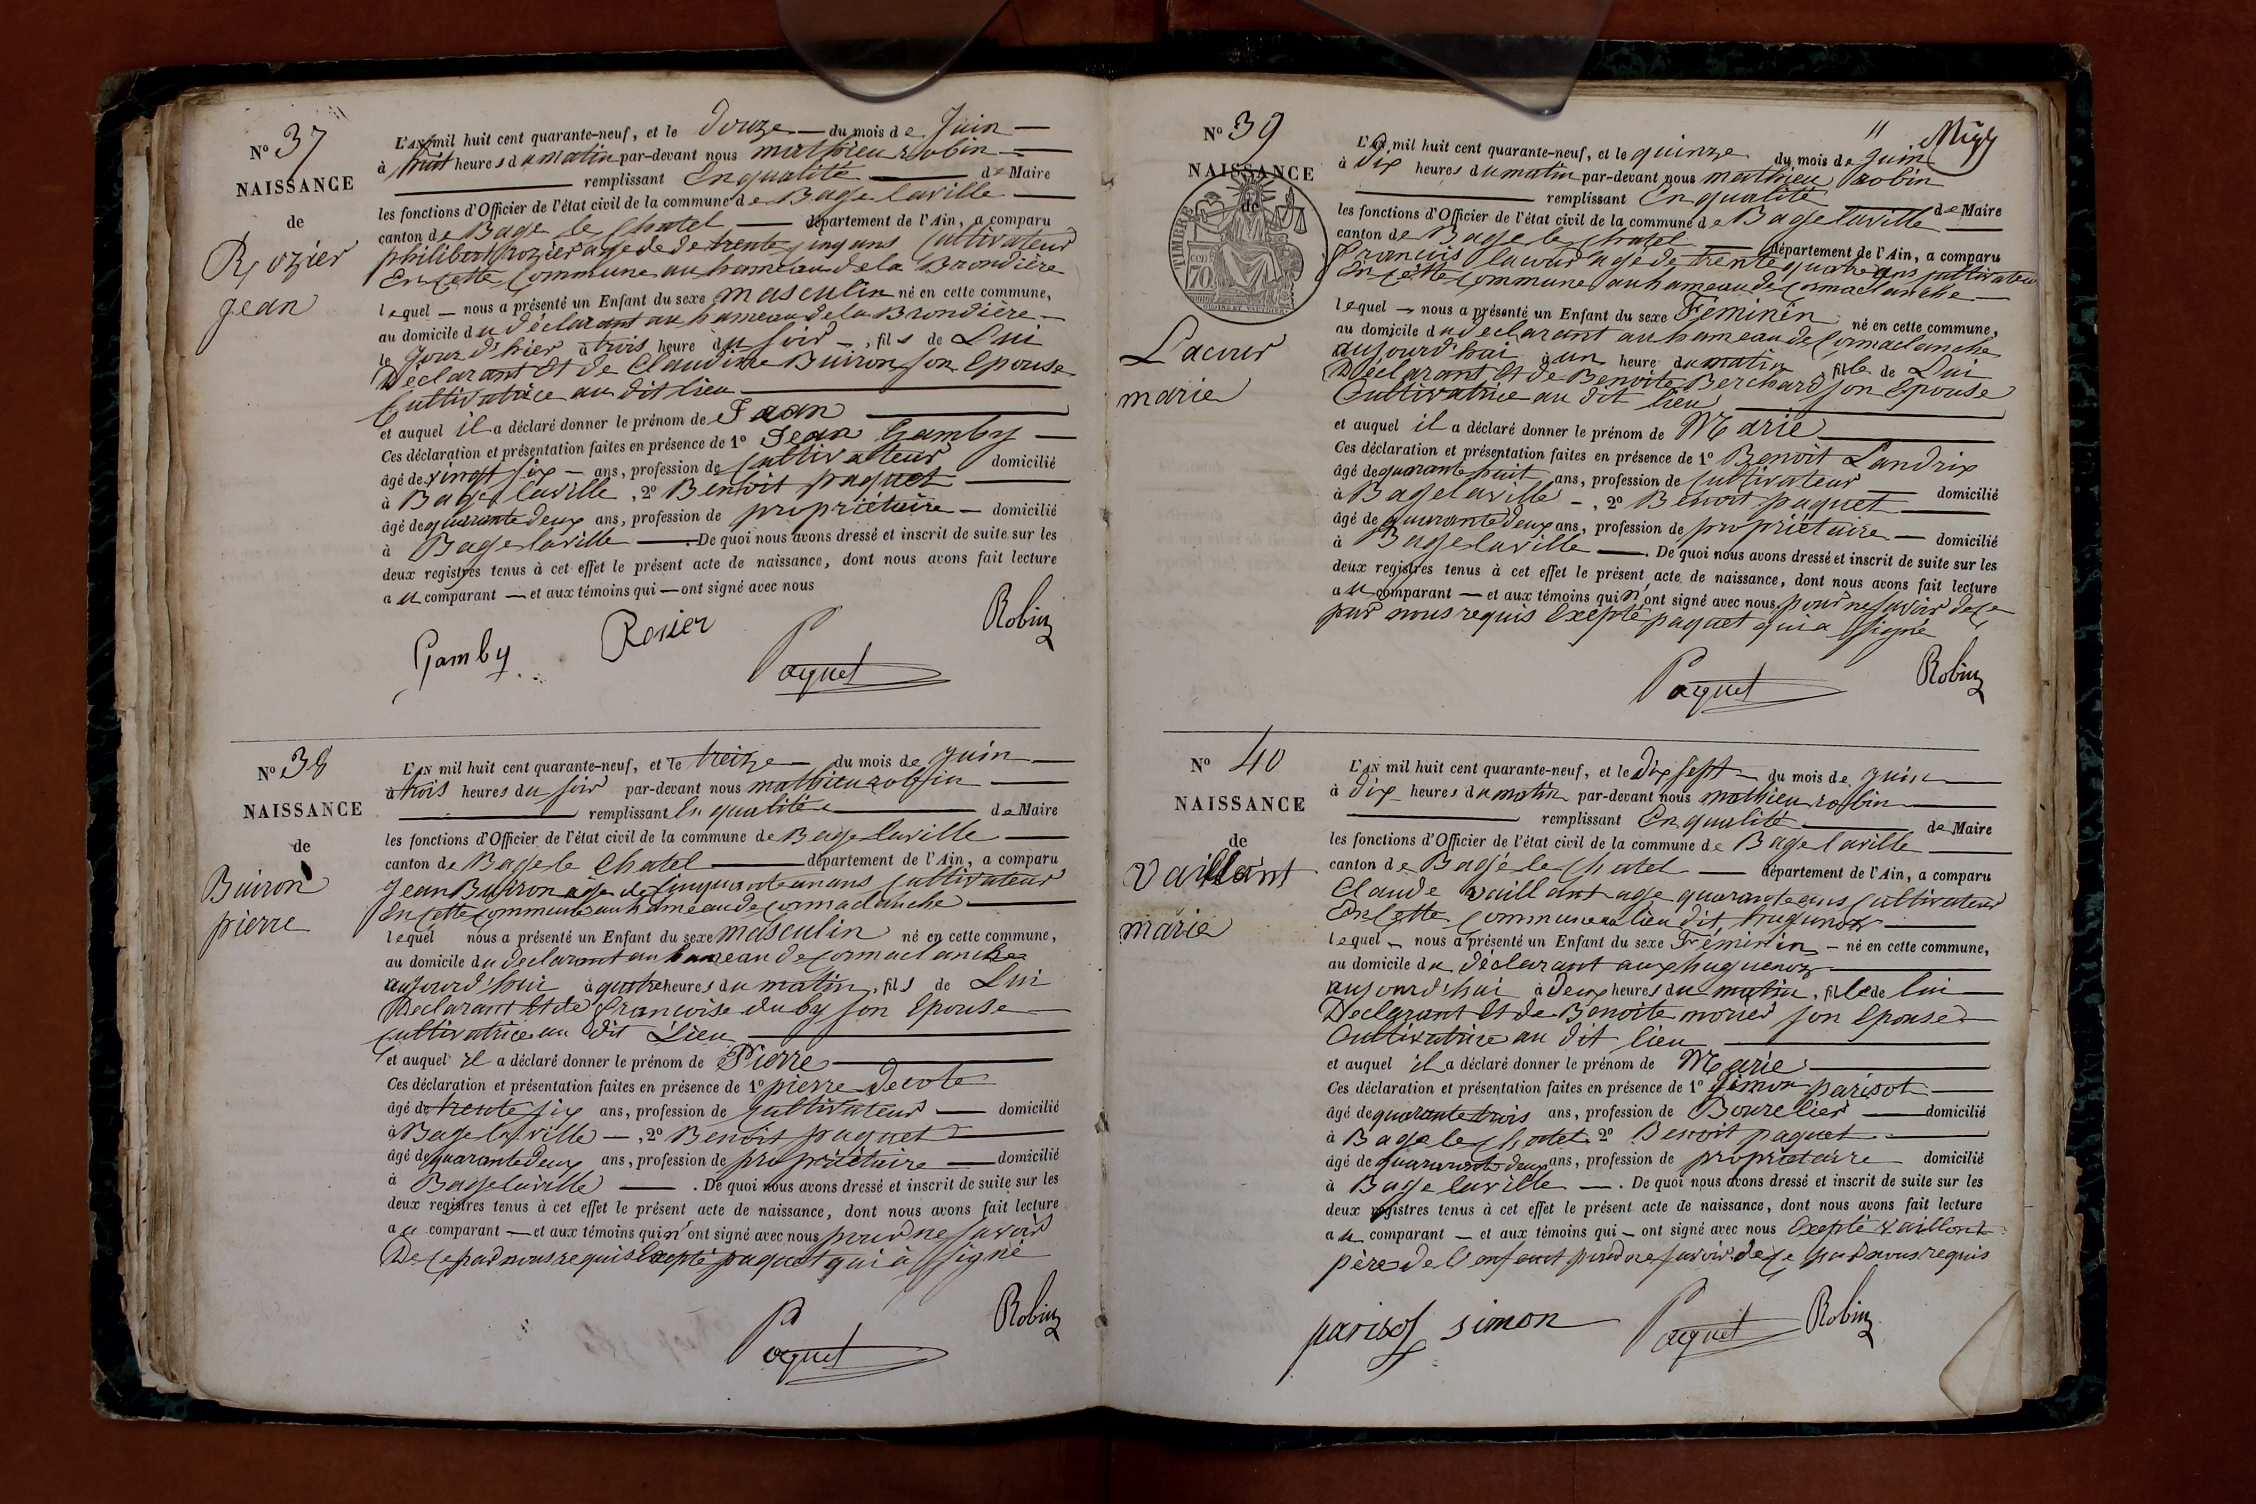 N° 37
NAISSANCE
de
Rozier
jean
L'AN mil huit cent quarante-neuf, et le douze — du mois de Juin —
à huit heures du matin par-devant nous mathieu robin —
remplissant En qualité — de Maire
les fonctions d'Officier de l'état civil de la commune de Bage laville —
canton de Bage le Chatel — département de l'Ain, a comparu
philibert Rozier age de de trente cinq ans Cultivateur
En cette Commune au hameau de la Brondière
lequel — nous a présenté un Enfant du sexe masculin né en cette commune,
au domicile du déclarant au hameau de la Brondière —
le jour d'hier à trois heure du soir —, fils de Lui
Déclarant Et de Claudine Buiron son Epouse
Cultivatrice au dit lieu
et auquel il a déclaré donner le prénom de Jean
Ces déclaration et présentation faites en présence de 1° Jean Gamby —
âgé de vingt six — ans, profession de Cultivateur domicilié
à Bage laville, 2° Benoit paquet —
âgé de quarante deux ans, profession de propriétaire — domicilié
à Bagelaville — . De quoi nous avons dressé et inscrit de suite sur les
deux registres tenus à cet effet le présent acte de naissance, dont nous avons fait lecture
au comparant — et aux témoins qui — ont signé avec nous
Gamby Rosier Paquet Robin
N° 38
NAISSANCE
de
Buiron
pierre
L'AN mil huit cent quarante-neuf, et le treize — du mois de juin —
à trois heures du soir par-devant nous mathieu robin —
remplissant En qualité — de Maire
les fonctions d'Officier de l'état civil de la commune de Bage laville —
canton de Bage le Chatel — département de l'Ain, a comparu
Jean Buiron age de Cinquante un ans Cultivateur
En cette commune au hameau de Cormaclanche —
lequel nous a présenté un Enfant du sexe masculin né en cette commune,
au domicile du declarant au hameau de Cormaclanche
aujourd'hui à quatre heures du matin, fils de Lui
Declarant Et de francoise duby son Epouse
Cultivatrice au dit Lieu
et auquel il a déclaré donner le prénom de Pierre
Ces déclaration et présentation faites en présence de 1° pierre Decote
âgé de trente six ans, profession de Cultivateur — domicilié
à Bage la ville —, 2° Benoit paquet —
âgé de quarante deux ans, profession de propriétaire — domicilié
à Bagelaville — . De quoi nous avons dressé et inscrit de suite sur les
deux registres tenus à cet effet le présent acte de naissance, dont nous avons fait lecture
au comparant — et aux témoins qui n'ont signé avec nous pour ne savoir
De ce par nous requis Excepté paquet qui à signé
Paquet Robin
N° 39
NAISSANCE
de
TIMBRE
70
Lacour
marie
11
L'AN mil huit cent quarante-neuf, et le quinze du mois de Juin
à dix heures du matin par-devant nous mathieu robin
remplissant En qualité — de Maire
les fonctions d'Officier de l'état civil de la commune de Bage laville —
canton de Bage le Chatel — département de l'Ain, a comparu
Francois lacour age de trente quatre ans cultivateur
En Cette Commune au hameau de Cormaclanche —
lequel — nous a présenté un Enfant du sexe Féminin né en cette commune,
au domicile du declarant au hameau de Cormaclanche
aujourd'hui à un heure du matin, fille de Lui
Déclarant Et de Benoite Berchard son Epouse
Cultivatrice au dit lieu
et auquel il a déclaré donner le prénom de Marie
Ces déclaration et présentation faites en présence de 1° Benoit Landrix
âgé de quarante huit ans, profession de Cultivateur
à Bagelaville —, 2° Benoit paquet — domicilié
âgé de quarante deux ans, profession de propriétaire —
à Bagelaville — . De quoi nous avons dressé et inscrit de suite sur les domicilié
deux registres tenus à cet effet le présent acte de naissance, dont nous avons fait lecture
au comparant — et aux témoins qui n'ont signé avec nous pour ne savoir de ce
par nous requis Excepté paquet qui a signé
Paquet Robin
N° 40
NAISSANCE
de
Vaillant
marie
L'AN mil huit cent quarante-neuf, et le dix sept — du mois de juin
à dix heures du matin par-devant nous mathieu robin
remplissant En qualité — de Maire
les fonctions d'Officier de l'état civil de la commune de Bage laville
canton de Bagé le Chatel — département de l'Ain, a comparu
Claude vaillant age quarante ans Cultivateur
En Cette Commune au lieu dit,
lequel — nous a présenté un Enfant du sexe Féminin — né en cette commune,
au domicile du déclarant aux huguenoz
aujourd'hui à deux heures du matin, fille de lui
Declarant Et de Benoite morier son Epouse
Cultivatrice au dit lieu
et auquel il a déclaré donner le prénom de Marie
Ces déclaration et présentation faites en présence de 1° Simon parisot
âgé de quarante trois ans, profession de Bourelier — domicilié
à Bage le Chatel 2° Benoit paquet
âgé de quarante deux ans, profession de propriétaire domicilié
à Bage laville — . De quoi nous avons dressé et inscrit de suite sur les
deux registres tenus à cet effet le présent acte de naissance, dont nous avons fait lecture
au comparant — et aux témoins qui — ont signé avec nous Excepté vaillant
père de l'enfant pour ne savoir de ce par nous requis
parisot simon Paquet Robin